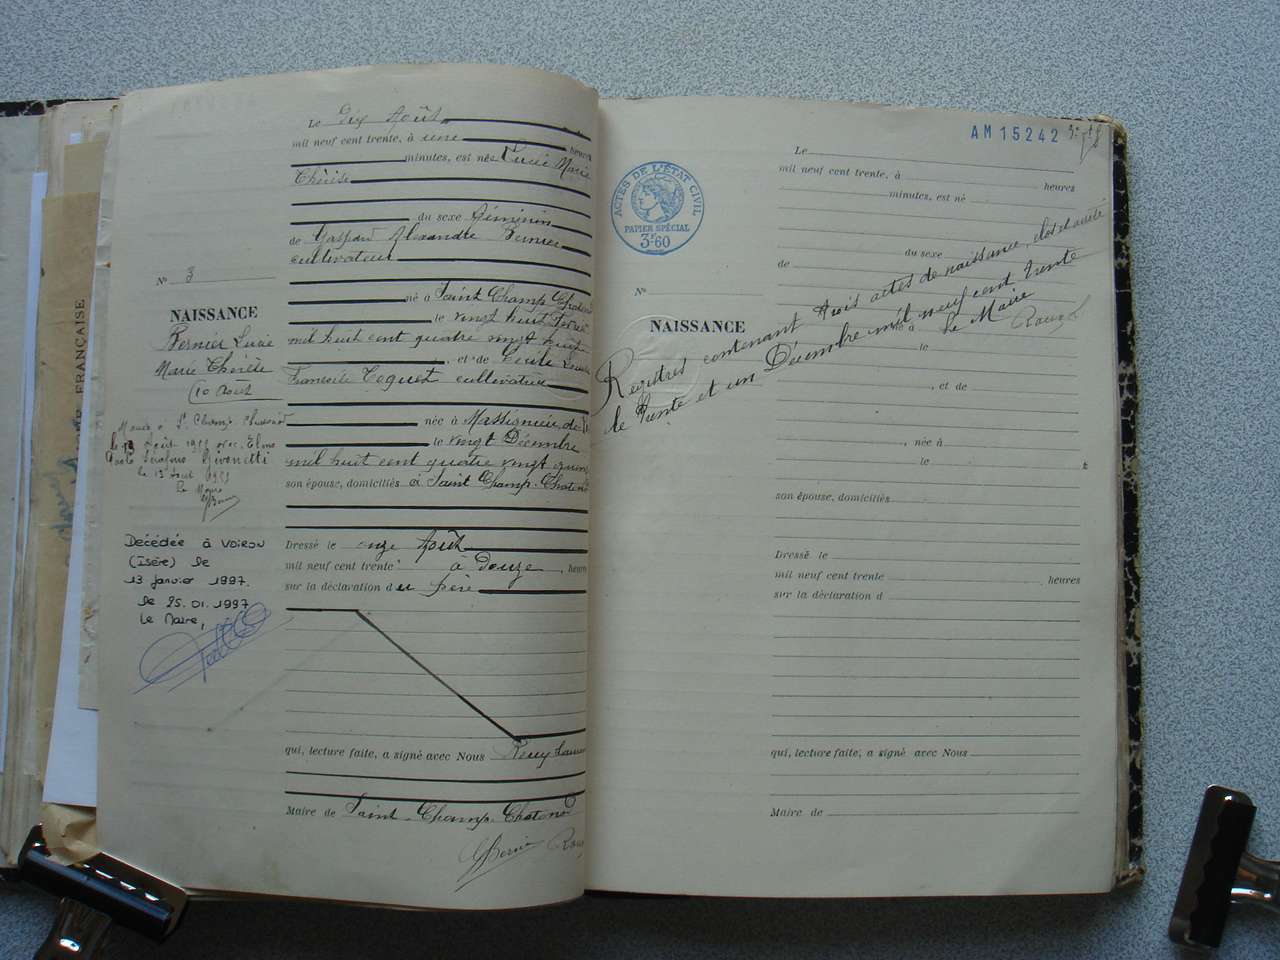 Le dix Août
mil neuf cent trente, à une heures
minutes, est née Lucie Marie
Thérèse
du sexe féminin
de Gaspard Alexandre Bernier
cultivateur
né à Saint Champ Chatonod
le vingt huit
mil huit cent quatre vingt
, et de Cécile
Françoise Coquet cultivatrice
née à Massignieu de
le vingt Décembre
mil huit cent quatre vingt
son épouse, domiciliés à Saint Champ-Chatonod
Dressé le onze Août
mil neuf cent trente à Douze, heures
sur la déclaration du père
qui, lecture faite, a signé avec Nous
Maire de Saint-Champ-Chatonod
Bernier
N° 3
NAISSANCE
Bernier Lucie
Marie Thérèse
(10 Août
Mariée à St Champ
le 13 Août 1955 avec
le 13 Août 1955
Le Maire
Décédée à VOIRON
(Isère) le
13 janvier 1997.
le 25.01.1997
Le Maire,
FRANÇAISE
AM 15242
ACTES DE L'ÉTAT CIVIL
PAPIER SPÉCIAL
3F.60
N°
NAISSANCE
Le
mil neuf cent trente, à heures
minutes, est né
du sexe
de
né à
le
, et de
, née à
le
son épouse, domiciliés
Dressé le
mil neuf cent trente , heures
sur la déclaration d
qui, lecture faite, a signé avec Nous
Maire de
Registres contenant trois actes de naissance, clos et arrêté
le trente et un Décembre mil neuf cent trente
Le Maire